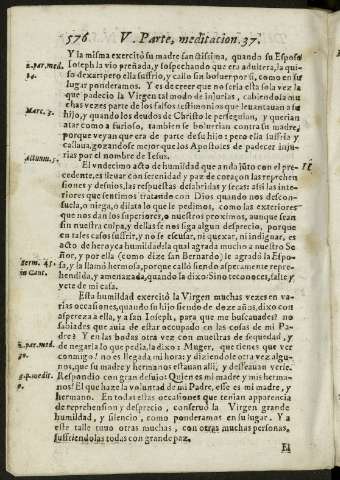 576 V. Parte, meditacion. 37.
Y la misma exercitò su madre santissima, quando su Esposo
2. par. med. Ioseph la vio preñada, y sospechando que era adultera, la qui-
14. so dexar: pero ella sufrio, y callo sin boluer por si, como en su
lugar ponderamos. Y es de creer que no seria esta sola vez la
que padecio la Virgen tal modo de injurias, cabiendola mu
chas vezes parte de los falsos testimonios que leuantauan a su
Marc. 3. hijo, y quando los deudos de Christo le perseguian, y querian
atar como a furioso, tambien se boluerian contra su madre,
porque veyan que era de parte de su hijo: pero ella sufria y
callaua, gozandose mejor que los Apostoles de padecer inju-
Actuum. 5. rias por el nombre de Iesus.
El vndecimo acto de humildad que anda jũto con el pre-
cedente, es lleuar con serenidad y paz de coraçon las reprehen
siones y desuios, las respuestas desabridas y secas: assi las inte-
riores que sentimos tratando con Dios quando nos descon-
suela, o niega, o dilata lo que le pedimos, como las exteriores
que nos dan los superiores, o nuestros proximos, aunque sean
sin nuestra culpa, y dellas se nos siga algun desprecio, porque
en tales casos sufrir, y no se escusar, ni quexar, ni indignar, es
acto de heroyca humildad: la qual agrada mucho a nuestro Se
ñor, y por ella (como dize san Bernardo) le agradò la Espo-
Serm. 45. sa, y la llamò hermosa, porque callò siendo asperamente repre-
in Cant. hendida, y amenazada, quando la dixo: Sino te conoces, salte, y
vete de mi casa.
Esta humildad exercitò la Virgen muchas vezes en va-
rias ocasiones, quando su hijo siendo de doze años, dixo con
aspereza a ella, y a san Ioseph, para que me buscauades? no
sabiades que auia de estar occupado en las cosas de mi Pa-
dre? Y en las bodas otra vez con muestras de sequedad, y
2. par. med. de negarla lo que pedia, la dixo: Muger, que tienes que ver
conmigo? no es llegada mi hora: y diziendole otra vez algu-
nos, que su madre y hermanos estauan alli, y desseauan verle.
Respondio con gran desuio: Quien es mi madre y mis herma-
nos? El que haze la voluntad de mi Padre, esse es mi madre, y
hermano. En todas estas occasiones que tenian apparencia
de reprehension y desprecio, conseruò la Virgen grande
humildad, y silencio, como ponderamos en su lugar. Y a
este talle tuuo otras muchas, con otras muchas personas,
sufriendolas todas con grande paz.
El